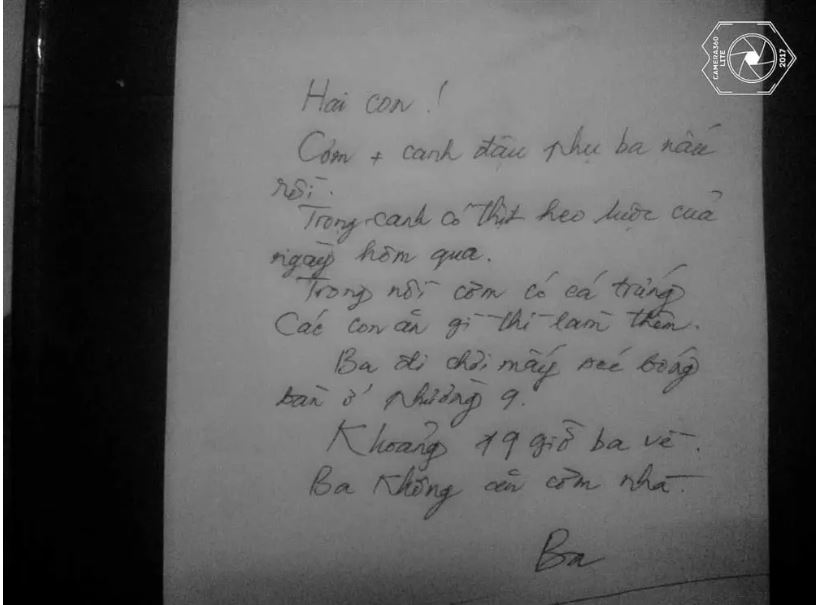 Hai con !
Cơm + canh đậu phụ ba nấu
rồi.
Trong canh có thịt heo luộc của
ngày hôm qua.
Trong nồi cơm có cá trứng
Các con ăn gì thì làm thêm.
Ba đi chơi mấy séc bóng
bàn ở phường 9.
Khoảng 19 giờ ba về.
Ba không ăn cơm nhà.
Ba
CAMERA360
LITE
2017